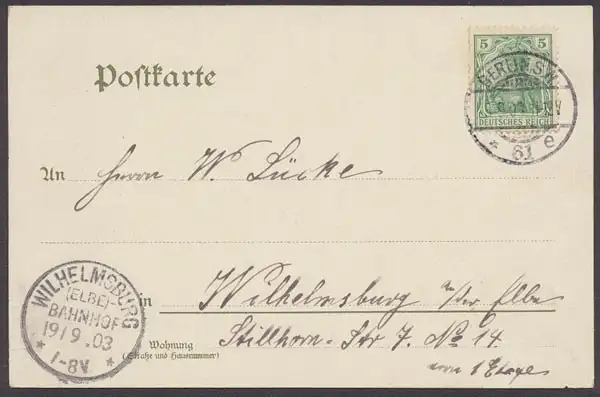 Postkarte
5 5
DEUTSCHES REICH
BERLIN S.W.
61 e
An Herrn W. Lücke
in Wilhelmsburg a/der Elbe
Wohnung
(Straße und Hausnummer)
Stillhorn-Str 7. No 14
1 Etage
WILHELMSBURG
(ELBE)-
BAHNHOF
19/9.03
* 1-8V *